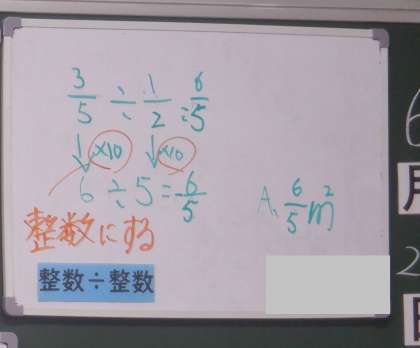 3/5 ÷ 1/2 = 6/5
↓×10 ↓×10
6 ÷ 5 = 6/5
A. 6/5 m²
整数にする
整数÷整数
6
月
2
日